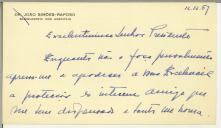 DR. JOÃO SIMÕES-RAPOSO
12.12.57
Excelentíssimo Senhor Presidente
Enquanto não o faço pessoalmente
apresso-me a agradecer a Vossa Excelência
a interesse amigo que
me tem dispensado e tanto me honra.